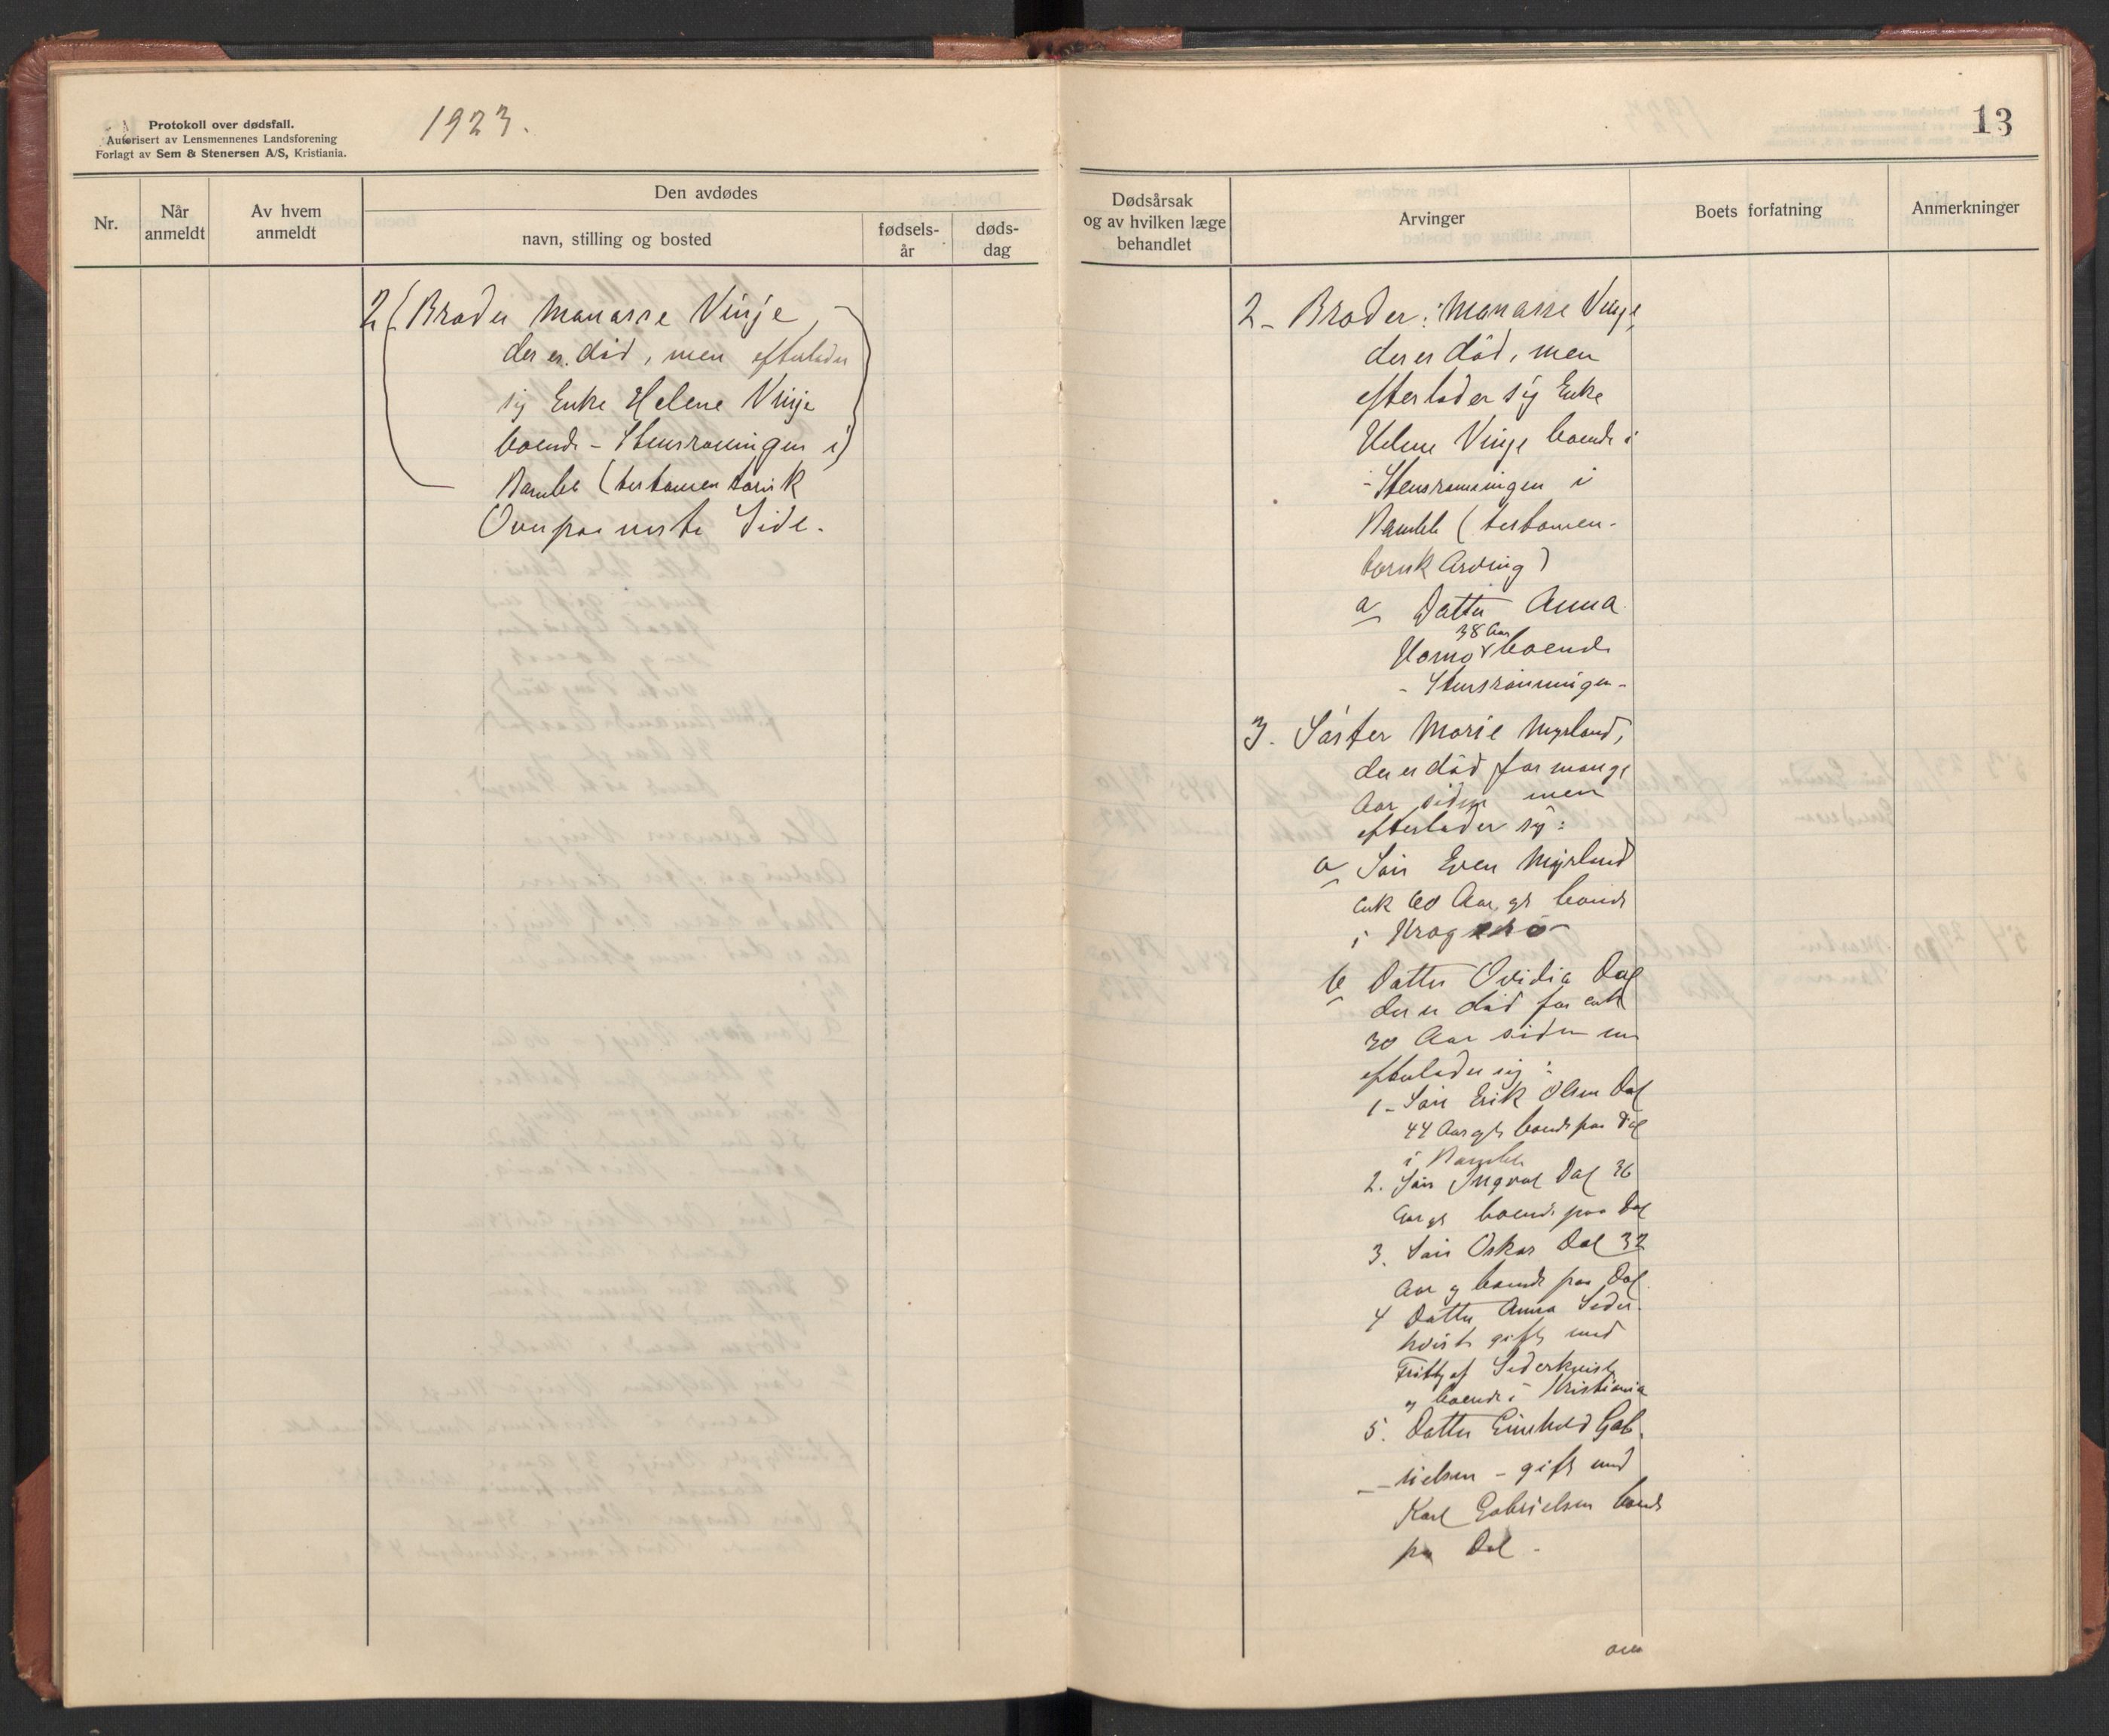 Protokoll over dødsfall.
Autorisert av Lensmennenes Landsforening
Forlagt av Sem & Stenersen A/S, Kristiania.
1923.
Nr.
Når
anmeldt
Av hvem
anmeldt
Den avdødes
navn, stilling og bosted
fødsels-
år
døds-
dag
2 (Broder Manasse Vinje,
der er død, men efterlader
sig Enke Helene Vinje
boende - Stensrønningen i)
Bamble (testamentarisk
Over paa neste Side.
13
Dødsårsak
og av hvilken læge
behandlet
Arvinger
Boets forfatning
Anmerkninger
2 - Broder: Manasse Vinje,
der er død, men
efterlader sig Enke
Helene Vinje boende i
- Stensrønningen i
Bamble (testamen-
tarisk Arving)
a Datter Anna
38 Aar
boende
- Stensrønningen -
3. Søster Marie Myrland,
der er død for mange
Aar siden men
efterlader sig:
a Søn Even Myrland
ca 60 Aar gl boende
i Kragerø
b Datter Ovidia Dal
der er død for ca
30 Aar siden men
efterlader sig:
1 - Søn Erik Olsen Dal
44 Aar gl boende paa Dal
i Bamble
2. Søn Ingval Dal 36
Aar gl boende paa Dal
3. Søn Oskar Dal 32
Aar g boende paa Dal.
4 Datter Anna Seder-
kvist gift med
Fritjof Sederkvist
og boende i Kristiania
5. Datter Gab-
rielsen - gift med
Karl Gabrielsen boende
pa Dal -
over